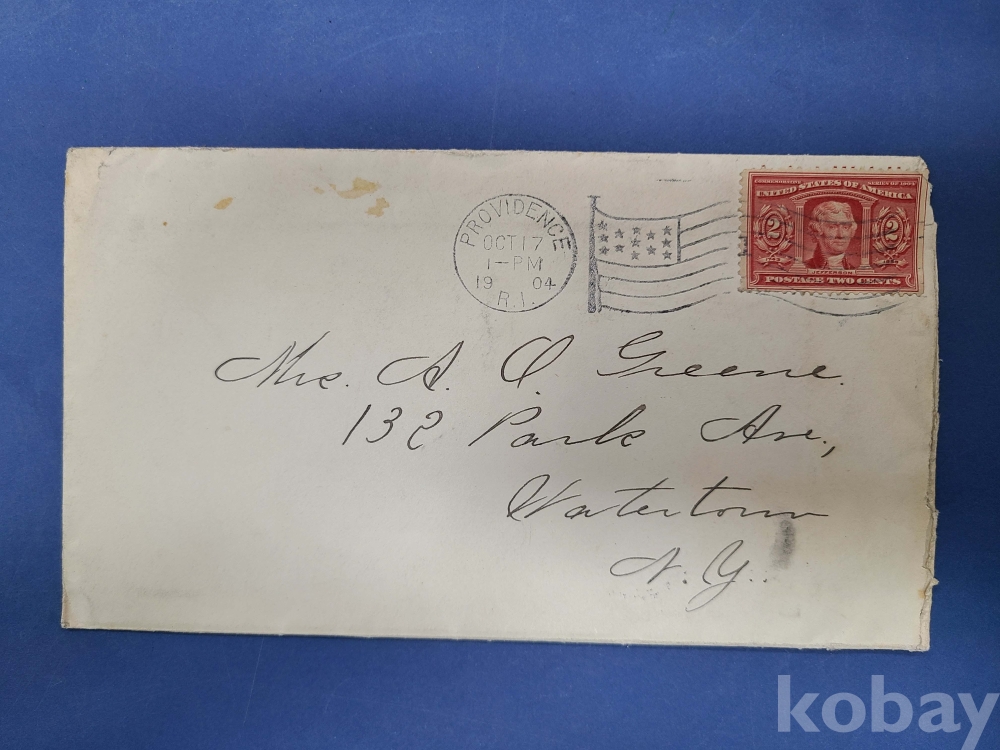 COMMEMORATIVE SERIES OF 1904
UNITED STATES OF AMERICA
2 2
JEFFERSON
POSTAGE TWO CENTS
PROVIDENCE
OCT 17
1-PM
19 04
R.I.
Mrs. A. O. Greene.
132 Park Ave.,
Watertown
N.Y.
kobay